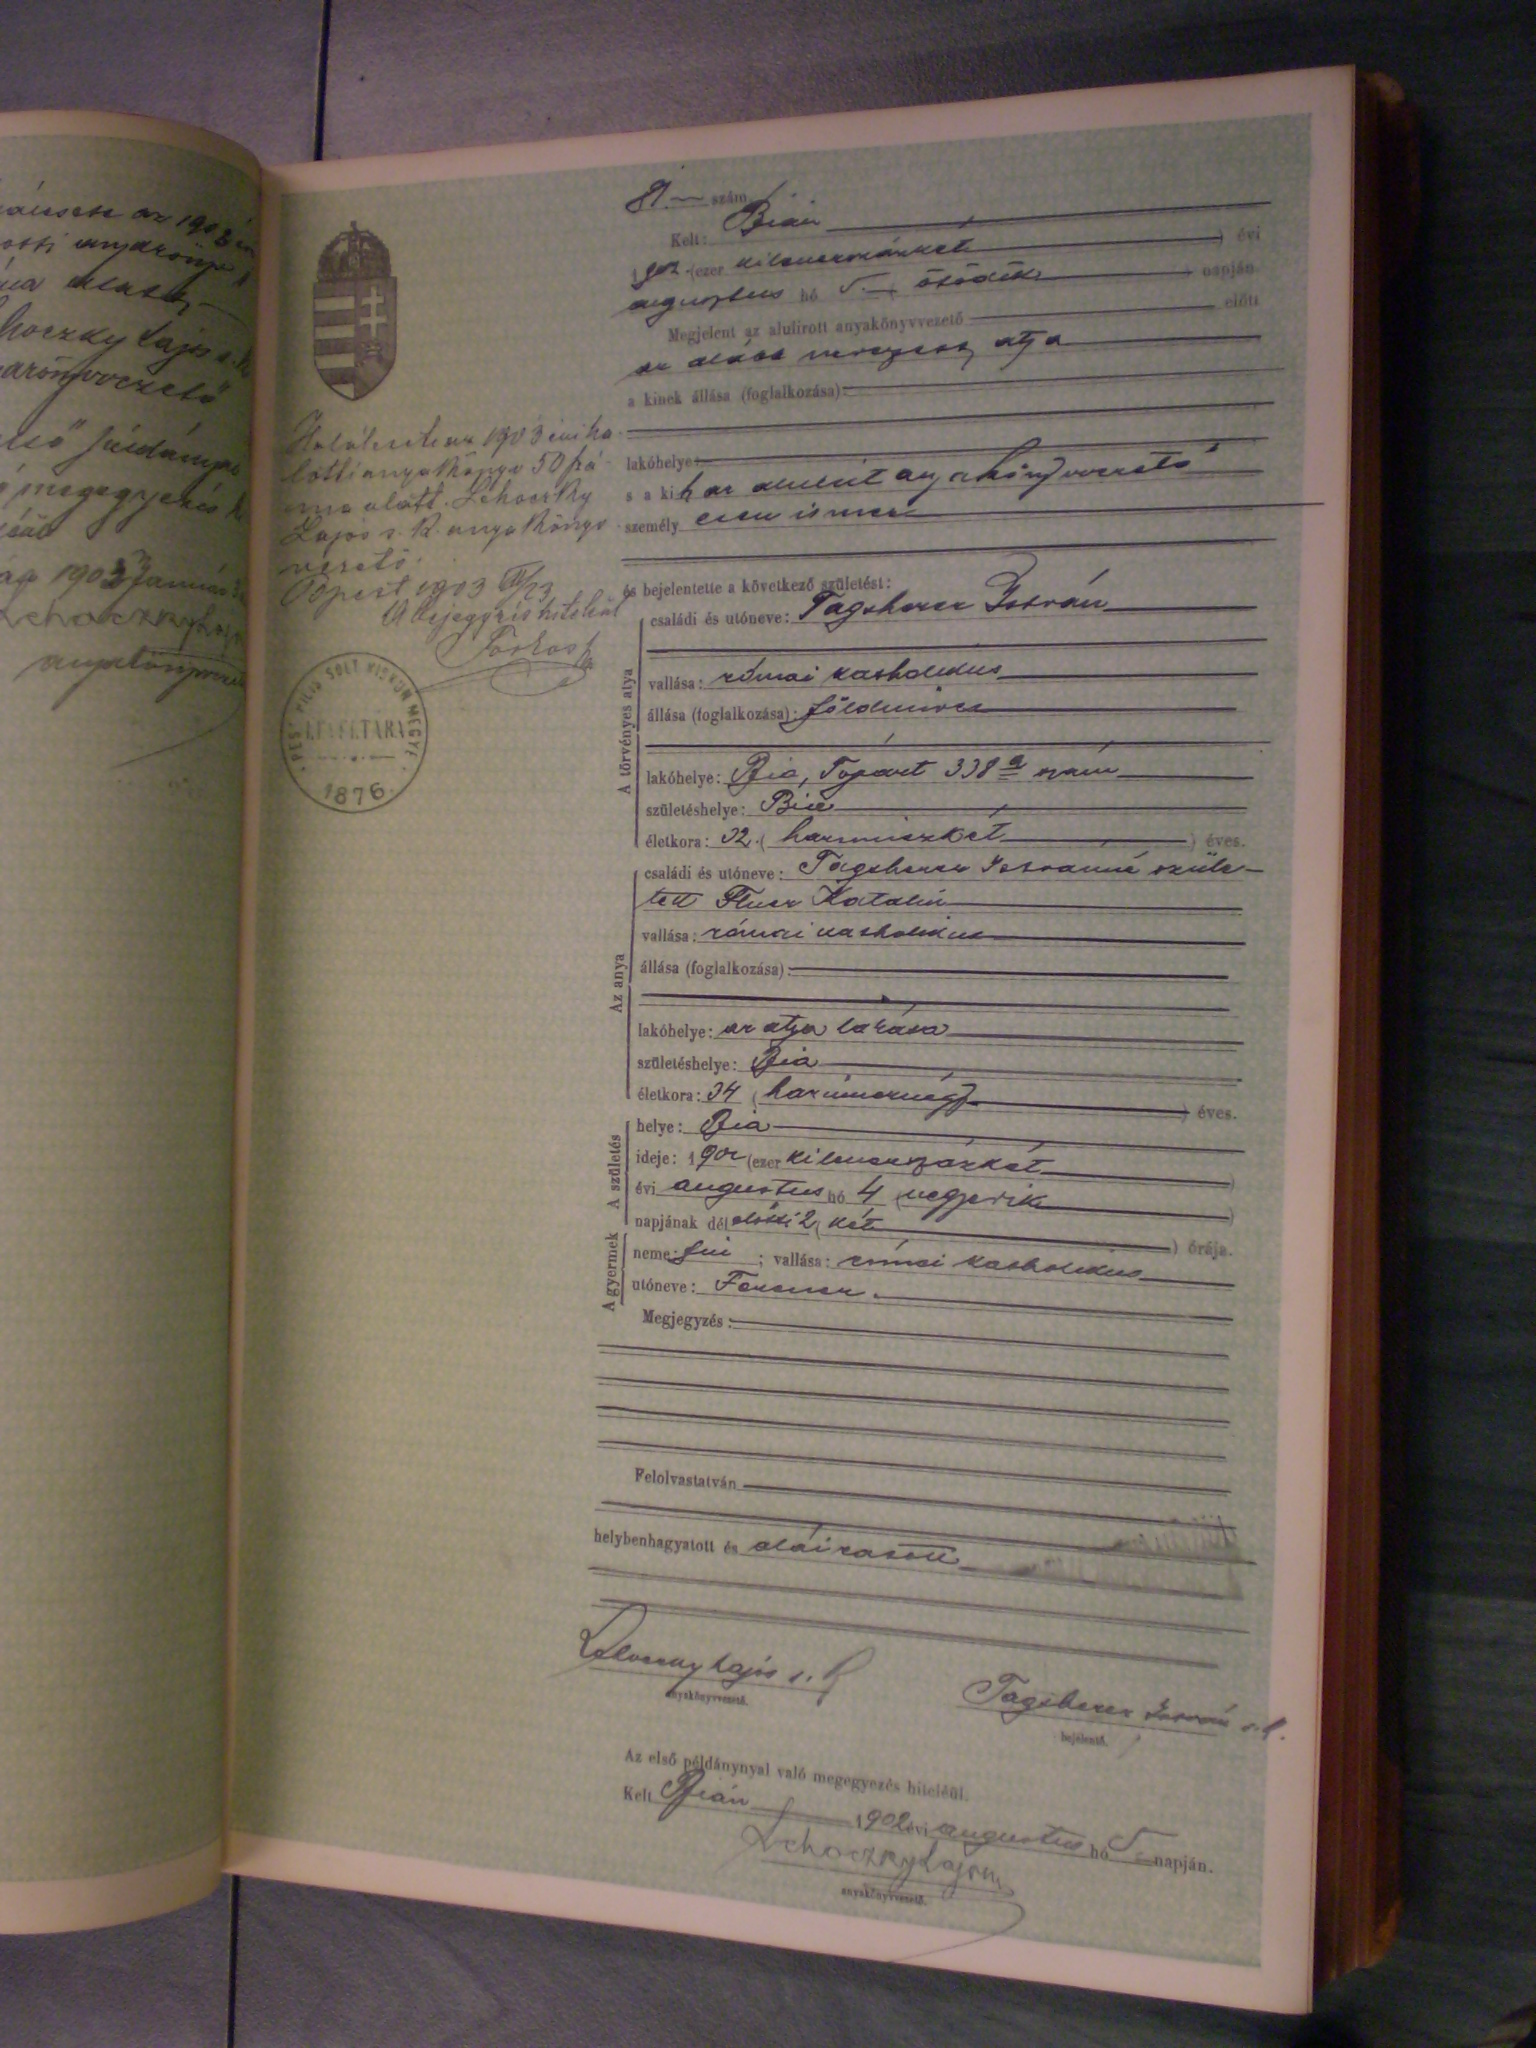 az 1903
Lajos s. k.
1903 Január
Lehoczky Lajos
Halálesete az 1903 évi ha-
lotti anyakönyv 50 szá-
ma alatt. Lehoczky
Lajos s. k. anyakönyv
vezető.
Bpest 1903 II/23
A bejegyzés hiteléül
PEST PILIS SOLT KISKUN MEGYE
LEVÉLTÁRA
1876.
81. szám
Kelt: Bián
1902. (ezer kilenczszázkét ) évi
augusztus hó 5. ( ötödik ) napján
Megjelent az alulirott anyakönyvvezető előtt
az alább nevezett atya
a kinek állása (foglalkozása):
lakóhelye:
s a kit az alulírt anyakönyvvezető
személyesen ismer
és bejelentette a következő születést:
A törvényes atya
családi és utóneve: Tagsherer István
vallása: római katholikus
állása (foglalkozása): földmíves
lakóhelye: Bia, Tópart 338 a szám
születéshelye: Bia
életkora: 32. ( harminczkét ) éves.
Az anya
családi és utóneve: Tagsherer Istvánné szüle-
tett Katalin
vallása: római katholikus
állása (foglalkozása):
lakóhelye: az atya lakása
születéshelye: Bia
életkora: 34 ( harmincznégy ) éves.
A születés
helye: Bia
ideje: 1902 (ezer kilenczszázkét )
évi augusztus hó 4 ( negyedik )
napjának délelőtti 2 ( két ) órája.
A gyermek
neme: fiú ; vallása: római katholikus
utóneve: Ferencz.
Megjegyzés:
Felolvastatván
helybenhagyatott és aláíratott
Lehoczky Lajos s. k.
anyakönyvvezető.
Tagsherer István s. k.
bejelentő.
Az első példánynyal való megegyezés hiteléül.
Kelt Bián 1902 évi augusztus hó 5 napján.
Lehoczky Lajos
anyakönyvvezető.